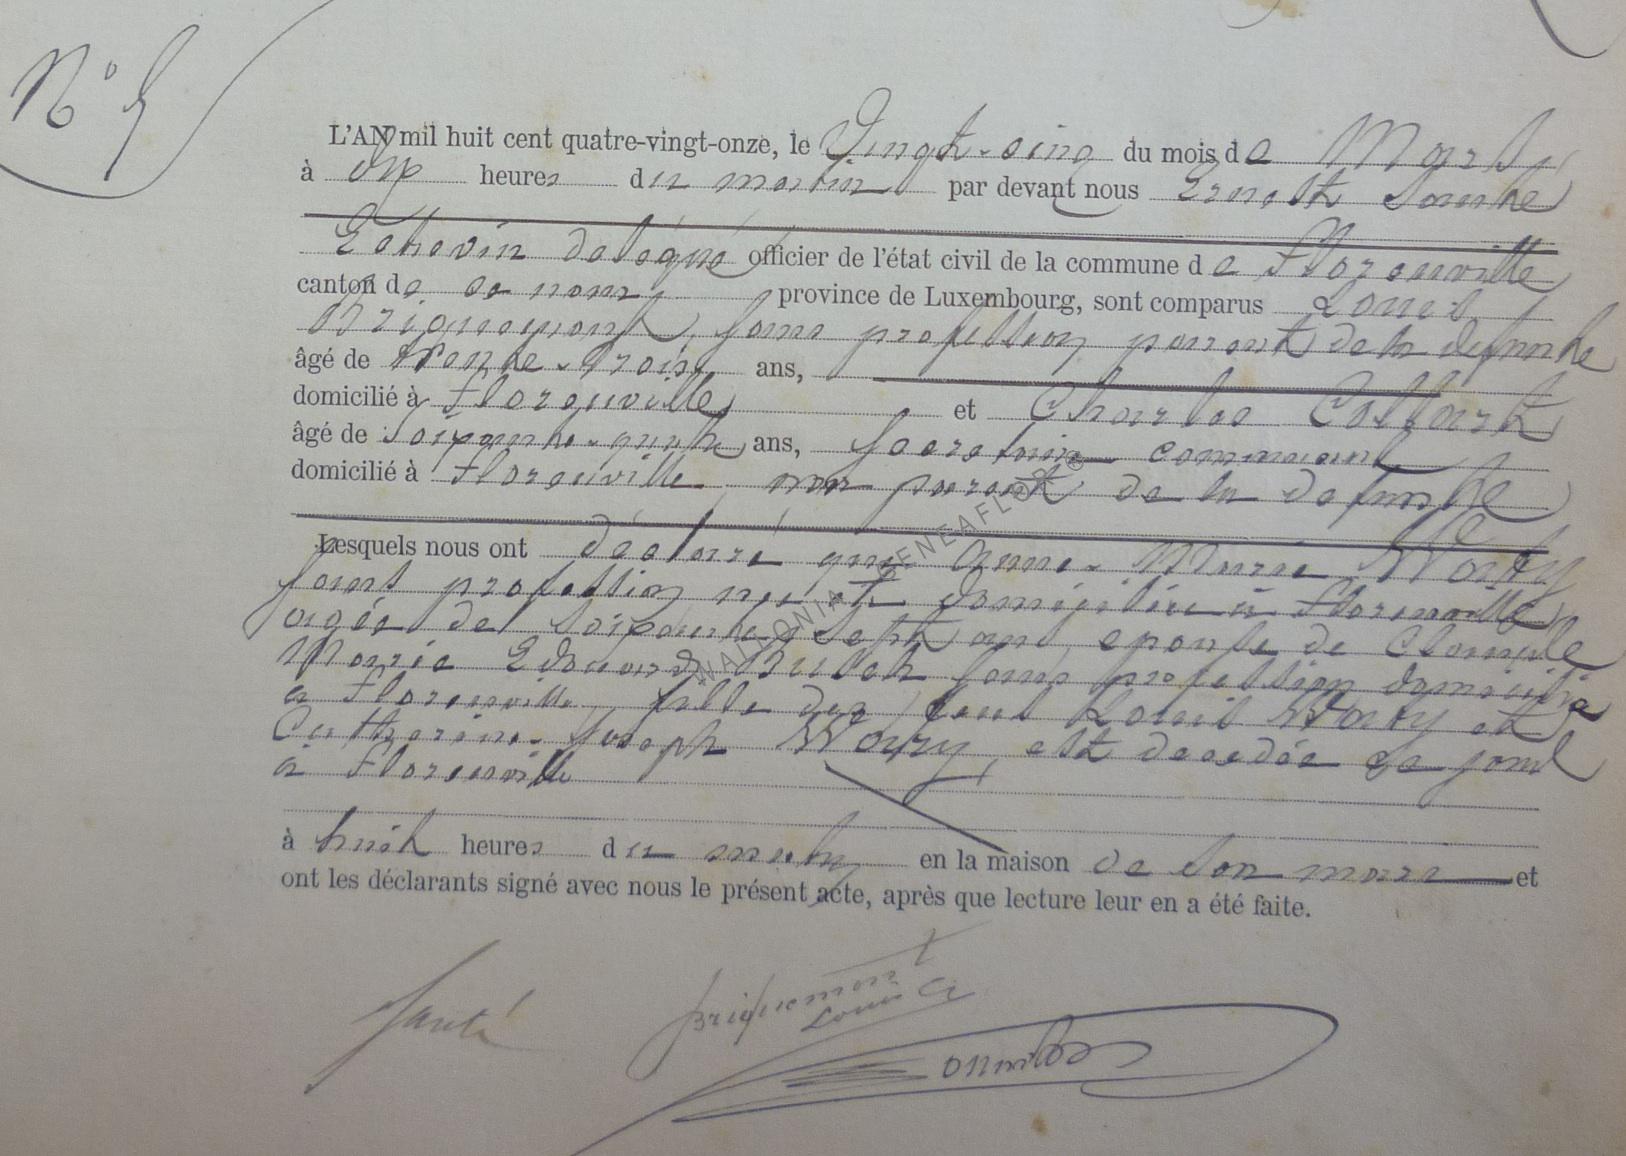 N° 5
L'AN mil huit cent quatre-vingt-onze, le Vingt-cinq du mois de Mars
à dix heures du matin par devant nous Ernest Santé
Echevin délégué officier de l'état civil de la commune de Florenville
canton de ce nom, province de Luxembourg, sont comparus Louis
Briquemont, sans profession parent de la defunte
âgé de trente-trois ans,
domicilié à Florenville et Charles Collart
âgé de soixante-quatre ans, Secretaire communal
domicilié à Florenville non parent de la defunte
Lesquels nous ont déclaré que Anne-Marie
sans profession née et domiciliée à Florenville
agée de soixante sept ans, epouse de
Marie Edouard sans profession domicilié
a Florenville, fille des feus Louis et
Catherine-Joseph est decedée ce jour
à Florenville
à huit heures du matin en la maison de son mari et
ont les déclarants signé avec nous le présent acte, après que lecture leur en a été faite.
Santé
Briquemont
Louis
WALLONIA GENEAFLOR ®